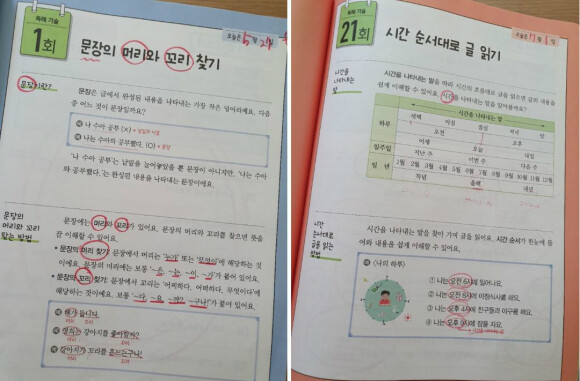 독해 기술
1회
오늘은 5월 29일
문장의 머리와 꼬리 찾기
문장이란?
문장은 글에서 완성된 내용을 나타내는 가장 작은 덩어리예요. 다음
중 어느 것이 문장일까요?
예 나 수아 공부 (X)
예 나는 수아와 공부했다. (O) → 문장
'나 수아 공부'는 낱말을 늘어놓았을 뿐 문장이 아니지만, '나는 수아
와 공부했다.'는 완성된 내용을 나타내는 문장이에요.
문장의
머리와 꼬리
찾는 방법
문장에는 머리와 꼬리가 있어요. 문장의 머리와 꼬리를 찾으면 뜻을
잘 이해할 수 있어요.
• 문장의 머리 찾기: 문장에서 머리는 '누가' 또는 '무엇이'에 해당하는 것
이에요. 문장의 머리에는 보통 '-은, -는, -이, -가'가 붙어 있어요.
• 문장의 꼬리 찾기: 문장에서 꼬리는 '어찌하다, 어떠하다, 무엇이다'에
해당하는 것이에요. 보통 '-다, -요, -까?, -구나!'가 붙어 있어요.
예 해가 뜹니다.
머리 꼬리
예 강아지가 꼬리를 흔드는구나!
머리 꼬리
독해 기술
21회
오늘은 7월 1일
시간 순서대로 글 읽기
시간을
나타내는
말
시간을 나타내는 말을 따라 시간의 흐름대로 글을 읽으면 글의 내용을
쉽게 이해할 수 있어요. 시간을 나타내는 말을 알아볼까요?
시간을 나타내는 말
하루 새벽 아침 점심 저녁 밤
오전 오후
어제 오늘 내일
일주일 지난주 이번 주 다음 주
일 년 1월 2월 3월 4월 5월 6월 7월 8월 9월 10월 11월 12월
작년 올해 내년
시간
순서대로
글을 읽는
방법
시간을 나타내는 말을 찾아 가며 글을 읽어요. 시간 순서가 한눈에 들
어와 내용을 쉽게 이해할 수 있어요.
예 <나의 하루>
① 나는 오전 6시에 일어나요.
③ 나는 오후 4시에 친구들과 야구를 해요.
④ 나는 오후 9시에 잠을 자요.